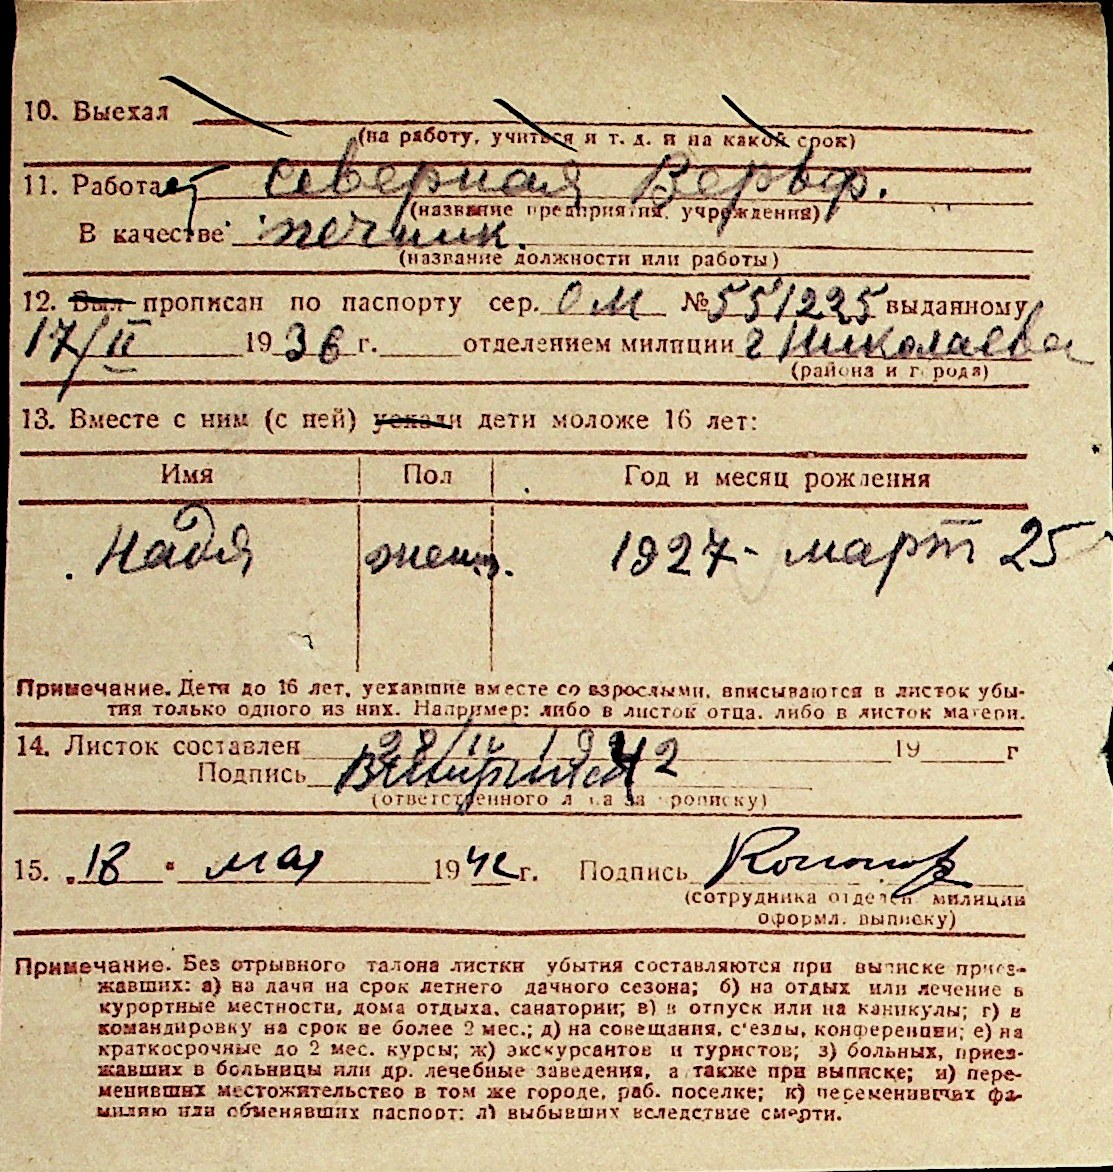 10. Выехал
(на работу, учиться и т. д. и на какой срок)
11. Работает Северная Верфь.
(название предприятия, учреждения)
В качестве печник.
(название должности или работы)
12. Был прописан по паспорту сер. ОМ № 551225 выданному
17/II 1936 г. отделением милиции г Николаева
(района и города)
13. Вместе с ним (с ней) уехали дети моложе 16 лет:
Имя Пол Год и месяц рождения
Надя жен. 1927 - март 25
Примечание. Дети до 16 лет, уехавшие вместе со взрослыми, вписываются в листок убы-
тия только одного из них. Например: либо в листок отца, либо в листок матери.
14. Листок составлен 1942 19 г
Подпись
(ответственного лица за прописку)
15. „18 " мая 1942 г. Подпись
(сотрудника отделен. милиции
оформл. выписку)
Примечание. Без отрывного талона листки убытия составляются при выписке приез-
жавших: а) на дачи на срок летнего дачного сезона; б) на отдых или лечение в
курортные местности, дома отдыха, санатории; в) в отпуск или на каникулы; г) в
командировку на срок не более 2 мес.; д) на совещания, с'езды, конференции; е) на
краткосрочные до 2 мес. курсы; ж) экскурсантов и туристов; з) больных, приез-
жавших в больницы или др. лечебные заведения, а также при выписке; и) пере-
менивших местожительство в том же городе, раб. поселке; к) переменивших фа-
милию или обменявших паспорт; л) выбывших вследствие смерти.